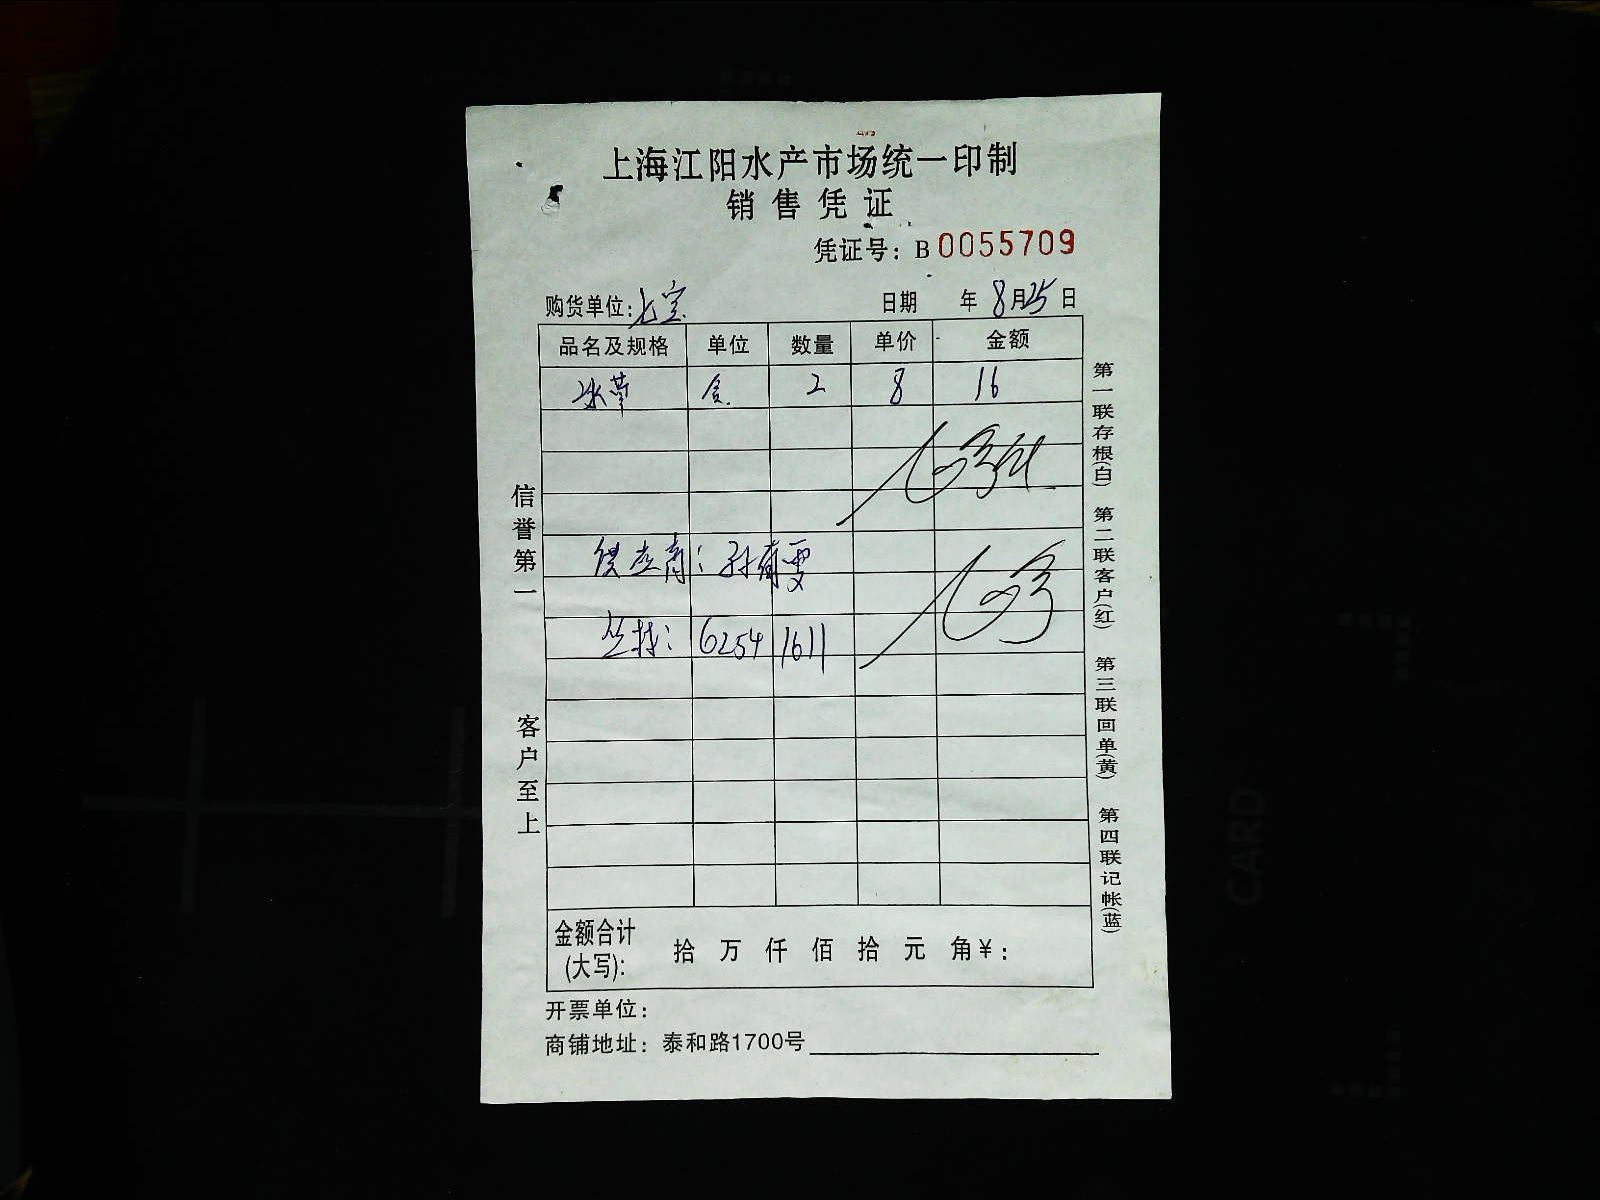 上海江阳水产市场统一印制
销售凭证
凭证号：B 0055709
购货单位：七宝 日期 年 8月25日
品名及规格 单位 数量 单价 金额
冰草 盒 2 8 16
供应商：孙甫雯
6254 1611
金额合计
(大写)： 拾 万 仟 佰 拾 元 角 ¥：
开票单位：
商铺地址：泰和路1700号
信誉第一
客户至上
第一联存根(白)
第二联客户(红)
第三联回单(黄)
第四联记帐(蓝)
CARD